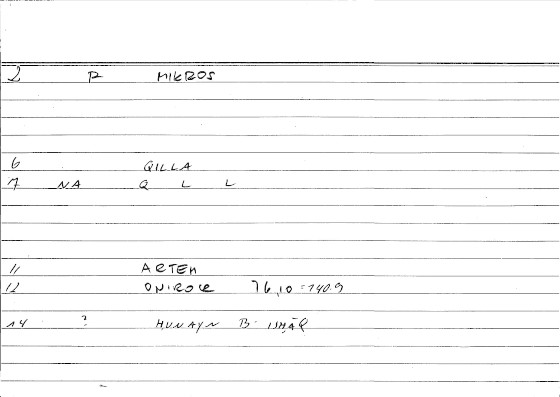 2 R MIKROS
6 QILLA
7 NA Q L L
11 ARTEM
12 ONIROCR 76,10 = 140.9
14 ? HUNAYN B. ISḤĀQ